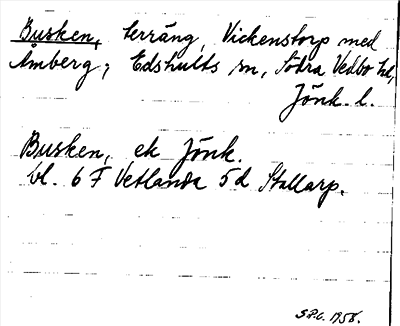 Busken, terräng, Vickenstorp med
Åmberg, Edshults sn, Södra Vedbo hd,
Jönk. l.
Busken, ek Jönk.
bl. 6 F Vetlanda 5d Stallarp.
1958.